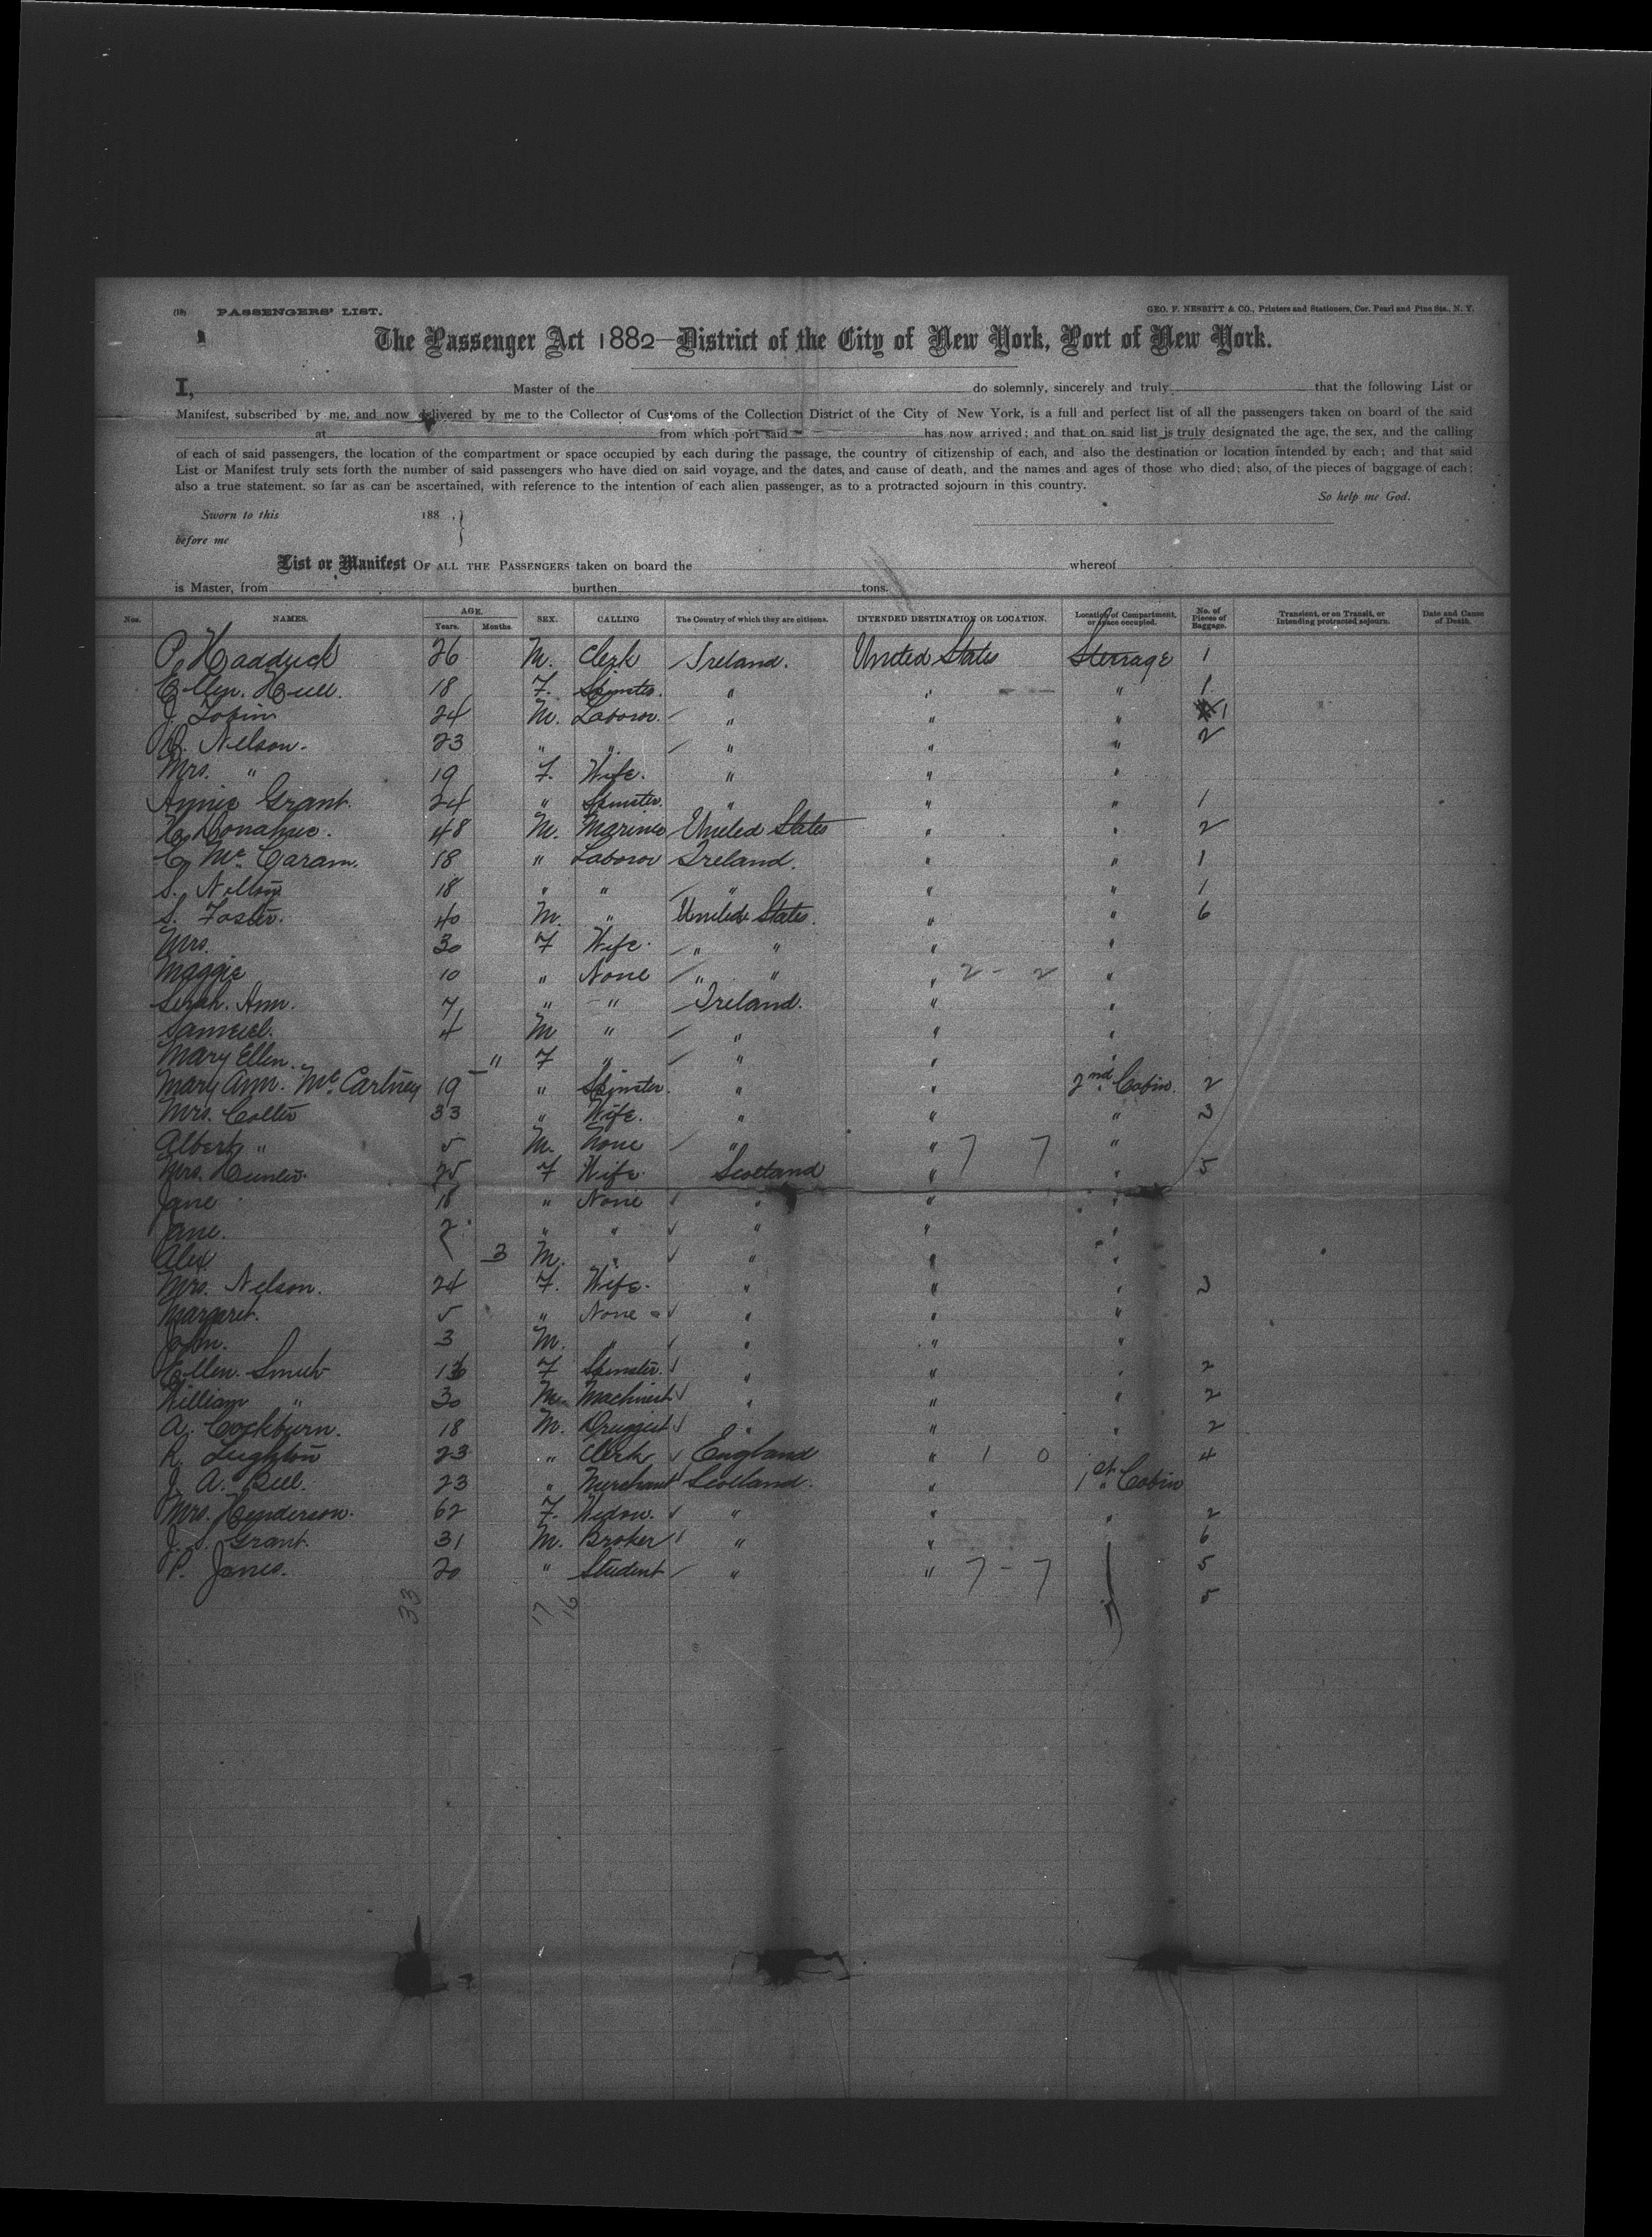 (18) PASSENGERS' LIST. GEO. F. NESBITT & CO., Printers and Stationers, Cor. Pearl and Pine Sts., N. Y.
The Passenger Act 1882—District of the City of New York, Port of New York.
I, Master of the do solemnly, sincerely and truly that the following List or
Manifest, subscribed by me, and now delivered by me to the Collector of Customs of the Collection District of the City of New York, is a full and perfect list of all the passengers taken on board of the said
at from which port said has now arrived; and that on said list is truly designated the age, the sex, and the calling
of each of said passengers, the location of the compartment or space occupied by each during the passage, the country of citizenship of each, and also the destination or location intended by each; and that said
List or Manifest truly sets forth the number of said passengers who have died on said voyage, and the dates, and cause of death, and the names and ages of those who died; also, of the pieces of baggage of each;
also a true statement. so far as can be ascertained, with reference to the intention of each alien passenger, as to a protracted sojourn in this country.
So help me God.
Sworn to this 188 . }
before me
List or Manifest OF ALL THE PASSENGERS taken on board the whereof
is Master, from burthen tons.
Nos. NAMES. AGE. Years. Months. SEX. CALLING The Country of which they are citizens. INTENDED DESTINATION OR LOCATION. Location of Compartment, or space occupied. No. of Pieces of Baggage. Transient, or on Transit, or Intending protracted sojourn. Date and Cause of Death.
P. Hadduck 26 M. Clerk Ireland. United States Sterrage 1
Ellen. 18 F. Spinster. " " " 1
J. Tobin 24 M. Laboror. " " " 1
Nelson. 23 " " " " " 2
Mrs. " 19 F. Wife. " " "
Annie Grant. 24 " Spinster. " " " 1
Donahue. 48 M. Mariner United States " " 2
Mc. Garam. 18 " Laboror Ireland. " " 1
S. 18 " " " " " 1
S. Foster. 40 M. " United States. " " 6
Mrs. 30 F Wife. " " " "
Maggie 10 " None " " " 2 - 2 "
Sarah. Ann. 7 " " Ireland. " "
Samuel. 4 M " " " "
Mary Ellen. " F " " " "
Mary Ann. Mc. Cartney 19 " Spinster. " " 2nd. Cabin. 2
Mrs. 33 " Wife. " " " 3
Albert " 5 M. None " " 7 7 "
Mrs. 25 F Wife. Scotland " " 5
Jane 18 " None " " "
Jane. 2 " " " " "
Alex 3 M. " " " "
Mrs. Nelson. 24 F. Wife. " " " 3
Margaret. 5 " None " " "
John. 3 M. " " " "
Ellen. Smith F Spinster. " " " 2
William " 30 M. Machinist " " " 2
A. Cockburn. 18 M. Druggist " " " 2
R. Leighton 23 " Clerk England " 1 0 4
J. A. Bell. 23 " Merchant Scotland. " 1st. Cabin
Mrs. Henderson. 62 F. Widow. " " " 2
J. S. Grant. 31 M. Broker " " 6
P. Janes. 20 " Student " " 7 - 7 5
5
33 17 16